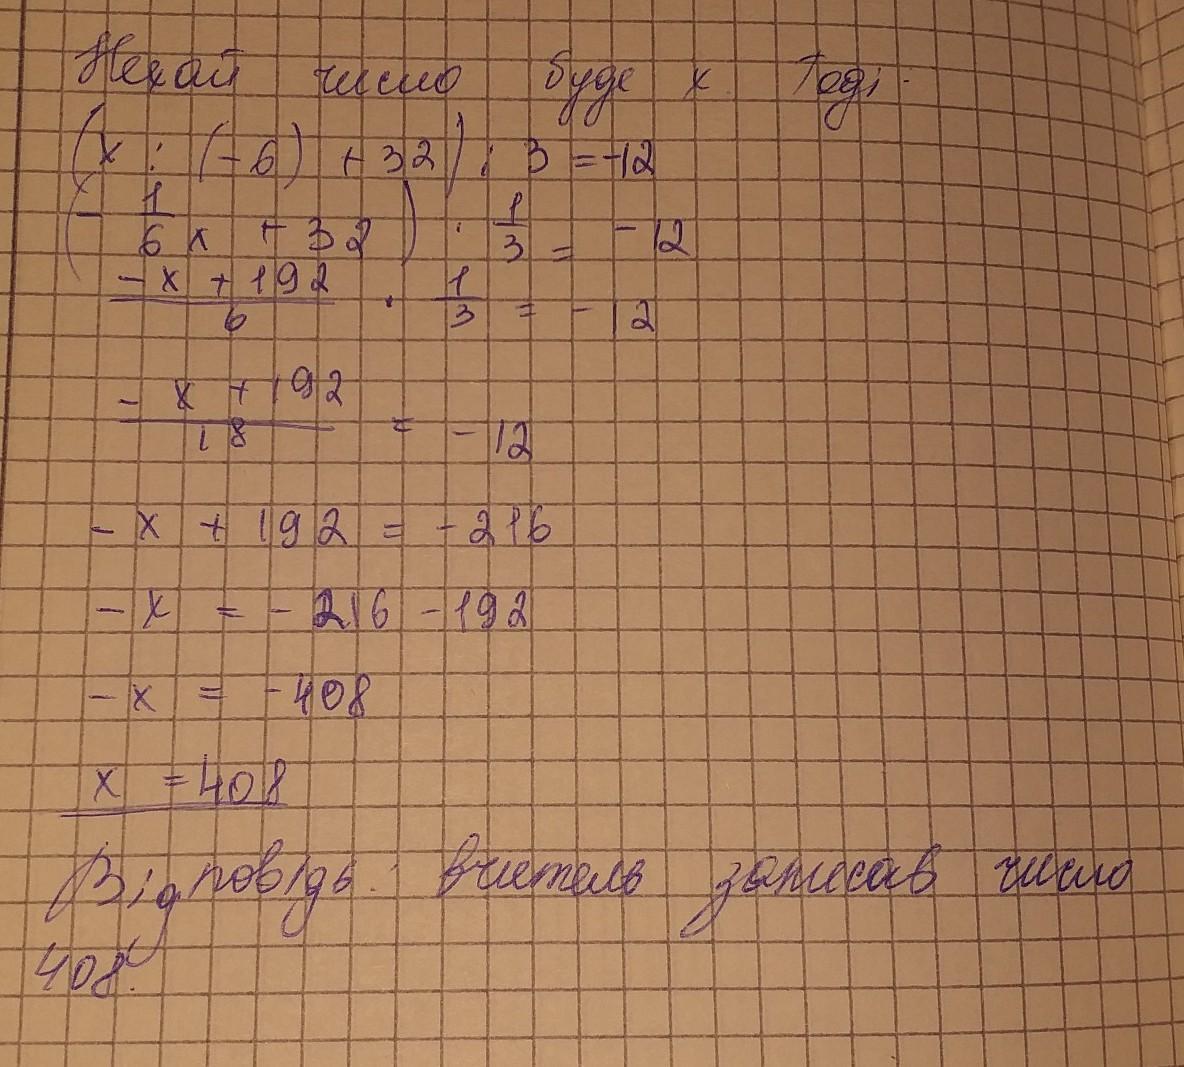 Нехай число буде х. Тоді.
(х : (-6) + 32) : 3 = -12
(- 1/6 х + 32) · 1/3 = -12
-х + 192 / 6 · 1/3 = -12
-х + 192 / 18 = -12
-х + 192 = -216
-х = -216 - 192
-х = -408
х = 408
Відповідь: вчитель записав число
408.